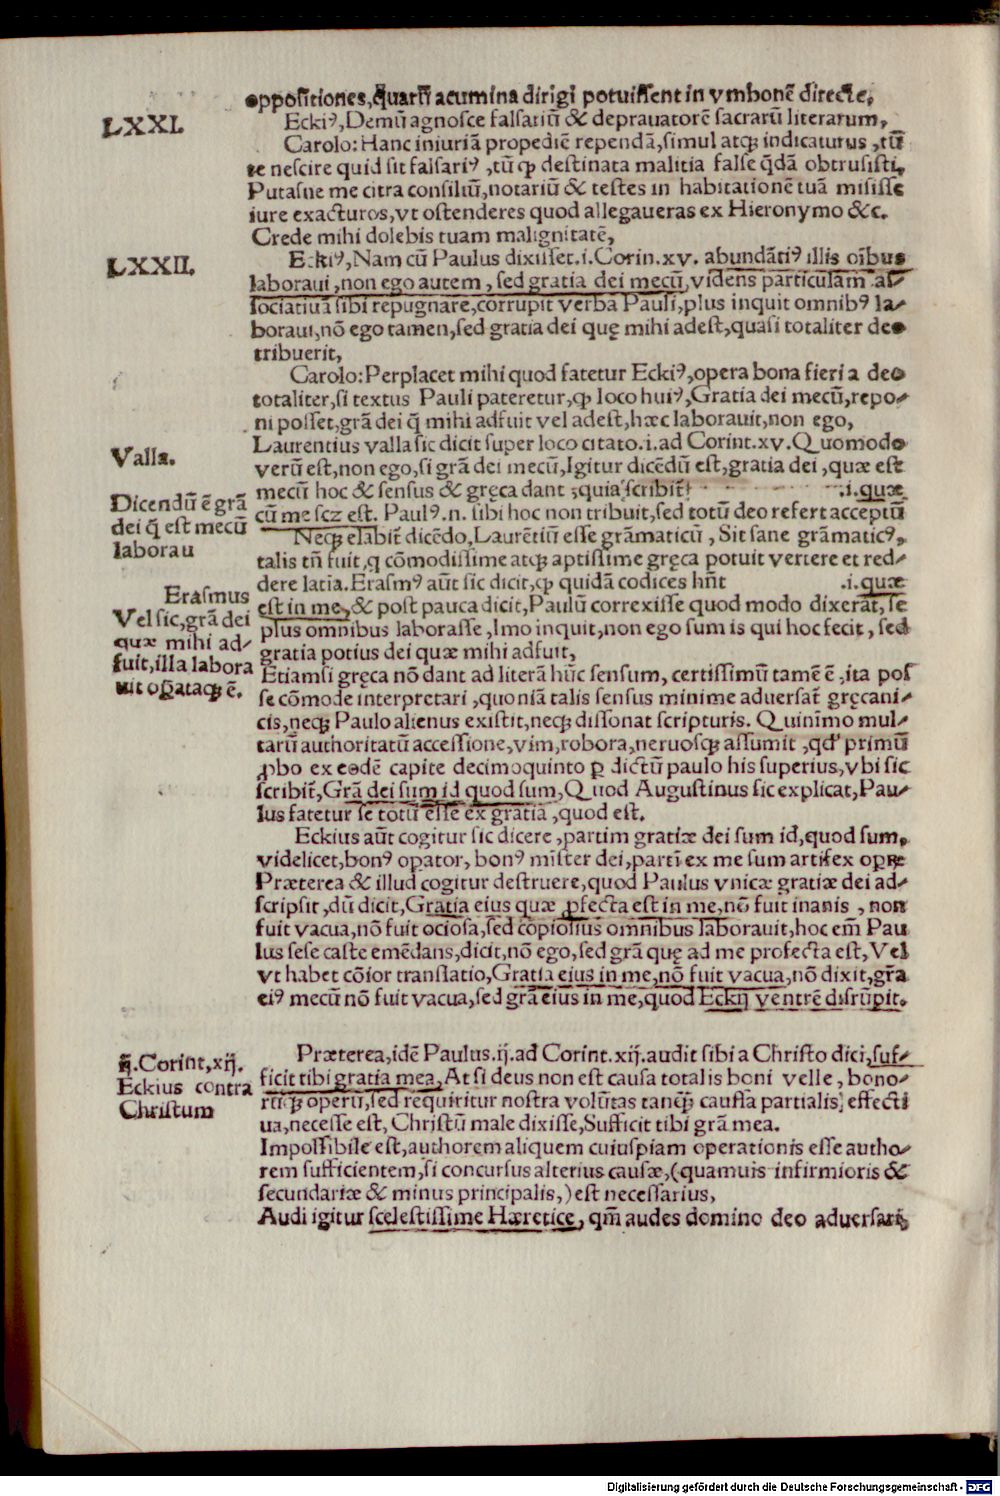 oppositiones, q̃uarũ acumina dirigi potuissent in vmbonẽ directe,
LXXI.
Eckiꝰ, Demũ agnosce falsariũ & deprauatorẽ sacrarũ literarum,
Carolo: Hanc iniuriã propediẽ rependã, simul atqꝫ indicaturus, tũ
te nescire quid sit falsariꝰ, tũ ꝙ destinata malitia false q̃dã obtrusisti,
Putasne me citra consiliũ, notariũ & testes in habitationẽ tuã misisse
iure exacturos, vt ostenderes quod allegaueras ex Hieronymo &c.
Crede mihi dolebis tuam malignitatẽ,
LXXII.
Eckiꝰ, Nam cũ Paulus dixisset .i. Corin. xv. abundãtiꝰ illis oĩbus
laboraui, non ego autem, sed gratia dei mecũ, videns particulam as
sociatiuã sibi repugnare, corrupit verba Pauli, plus inquit omnibꝰ la⸗
boraui, nõ ego tamen, sed gratia dei quę mihi adest, quasi totaliter deo
tribuerit,
Carolo: Perplacet mihi quod fatetur Eckiꝰ, opera bona fieri a deo
totaliter, si textus Pauli pateretur, ꝙ loco huiꝰ, Gratia dei mecũ, repo⸗
ni posset, grã dei q̃ mihi adfuit vel adest, hæc laborauit, non ego,
Valla.
Laurentius valla sic dicit super loco citato .i. ad Corint. xv. Quomodo
verũ est, non ego, si grã dei mecũ, Igitur dicẽdũ est, gratia dei, quæ est
mecũ hoc & sensus & gręca dant ; quia scribit̃ .i. quæ
Dicendũ ẽ grã
dei q̃ est mecũ
laborau
cũ me scꝫ est. Paulꝰ .n. sibi hoc non tribuit, sed totũ deo refert acceptũ
Neqꝫ elabit̃ dicẽdo, Laurẽtiũ esse grãmaticũ, Sit sane grãmaticꝰ,
talis tñ fuit, q cõmodissime atqꝫ aptissime gręca potuit vertere et red⸗
dere latia. Erasmꝰ aũt sic dicit, ꝙ quidã codices hñt .i. quæ
Erasmus
Vel sic, grã dei
quæ mihi ad⸗
fuit, illa labora
uit oꝑataqꝫ ẽ.
est in me, & post pauca dicit, Paulũ correxisse quod modo dixerat, se
plus omnibus laborasse, Imo inquit, non ego sum is qui hoc fecit, sed
gratia potius dei quæ mihi adfuit,
Etiamsi gręca nõ dant ad literã hũc sensum, certissimũ tamẽ ẽ, ita pos
se cõmode interpretari, quoniã talis sensus minime aduersat̃ gręcani⸗
cis, neqꝫ Paulo alienus existit, neqꝫ dissonat scripturis. Quinimo mul⸗
tarũ authoritatũ accessione, vim, robora, neruosqꝫ assumit, qd' primũ
ꝓbo ex eodẽ capite decimoquinto ꝑ dictũ paulo his superius, vbi sic
scribit̃, Grã dei sum id quod sum, Quod Augustinus sic explicat, Pau⸗
lus fatetur se totũ esse ex gratia, quod est.
Eckius aũt cogitur sic dicere, partim gratiæ dei sum id, quod sum,
videlicet, bonꝰ oꝑator, bonꝰ mĩster dei, partĩ ex me sum artifex oꝑis
Præterea & illud cogitur destruere, quod Paulus vnicæ gratiæ dei ad⸗
scripsit, dũ dicit, Gratia eius quæ ꝓfecta est in me, nõ fuit inanis, non
fuit vacua, nõ fuit ociosa, sed copiosius omnibus laborauit, hoc em̃ Pau
lus sese caste emẽdans, dicit, nõ ego, sed grã quę ad me profecta est, Vel
vt habet cõior translatio, Gratia eius in me, nõ fuit vacua, nõ dixit, gr̃a
eiꝰ mecũ nõ fuit vacua, sed grã eius in me, quod Eckij ventrẽ disrũpit.
ij. Corint, xij.
Eckius contra
Christum
Præterea, idẽ Paulus .ij. ad Corint. xij. audit sibi a Christo dici, suf⸗
ficit tibi gratia mea, At si deus non est causa totalis boni velle, bono⸗
rũqꝫ operũ, sed requiritur nostra volũtas tanqꝫ̃ caussa partialis effecti
ua, necesse est, Christũ male dixisse, Sufficit tibi grã mea.
Impossibile est, authorem aliquem cuiuspiam operationis esse autho⸗
rem sufficientem, si concursus alterius causæ, (quamuis infirmioris &
secundariæ & minus principalis,) est necessarius,
Audi igitur scelestissime Hæretice, qm̃ audes domino deo aduersari,
Digitalisierung gefördert durch die Deutsche Forschungsgemeinschaft - DFG